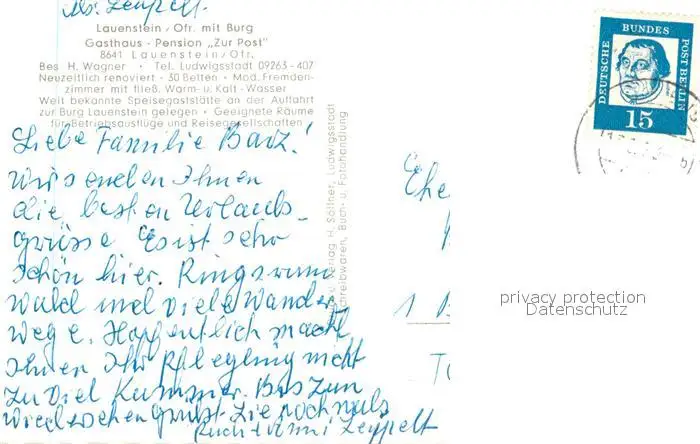 Lauenstein/Ofr. mit Burg
Gasthaus - Pension „Zur Post"
8641 Lauenstein/Ofr.
Bes. H. Wagner • Tel. Ludwigsstadt 09263-407
Neuzeitlich renoviert · 30 Betten • Mod. Fremden-
zimmer mit fließ. Warm- u. Kalt-Wasser
Weit bekannte Speisegaststätte an der Auffahrt
zur Burg Lauenstein gelegen • Geeignete Räume
für Betriebsausflüge und Reisegesellschaften
Liebe Familie Barz!
Wir senden Ihnen
die besten Urlaubs-
grüsse Es ist sehr
schön hier. Ringsrum
Wald und viele Wander
wege. Hoffentlich macht
Ihnen Ihr Pflegling nicht
zu viel Kummer. Bis zum
Wiedersehen grüßt Sie nochmals
Leppelt
u. Verlag H. Söllner, Ludwigsstadt
Schreibwaren, Buch- u. Fotohandlung
DEUTSCHE BUNDES POST BERLIN
15
Ehe
1 B
privacy protection
Datenschutz